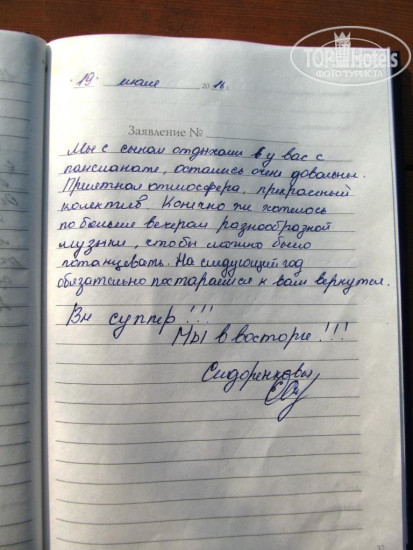 TOP Hotels
ФОТО ТУРИСТА
"19" июля 2016
Заявление №
Мы с сыном отдыхали в у вас с
пансионате, остались очен довольны.
Приятная атмосфера, прекрасный
колектив. Конично же хотелось
побольше вечером разнообразной
музыки, чтобы можно было
потанцевать. На следующий год
обязательно постараемся к вам вернутся.
Вы суппер!!!
Мы в восторге!!!
Сидоренковы